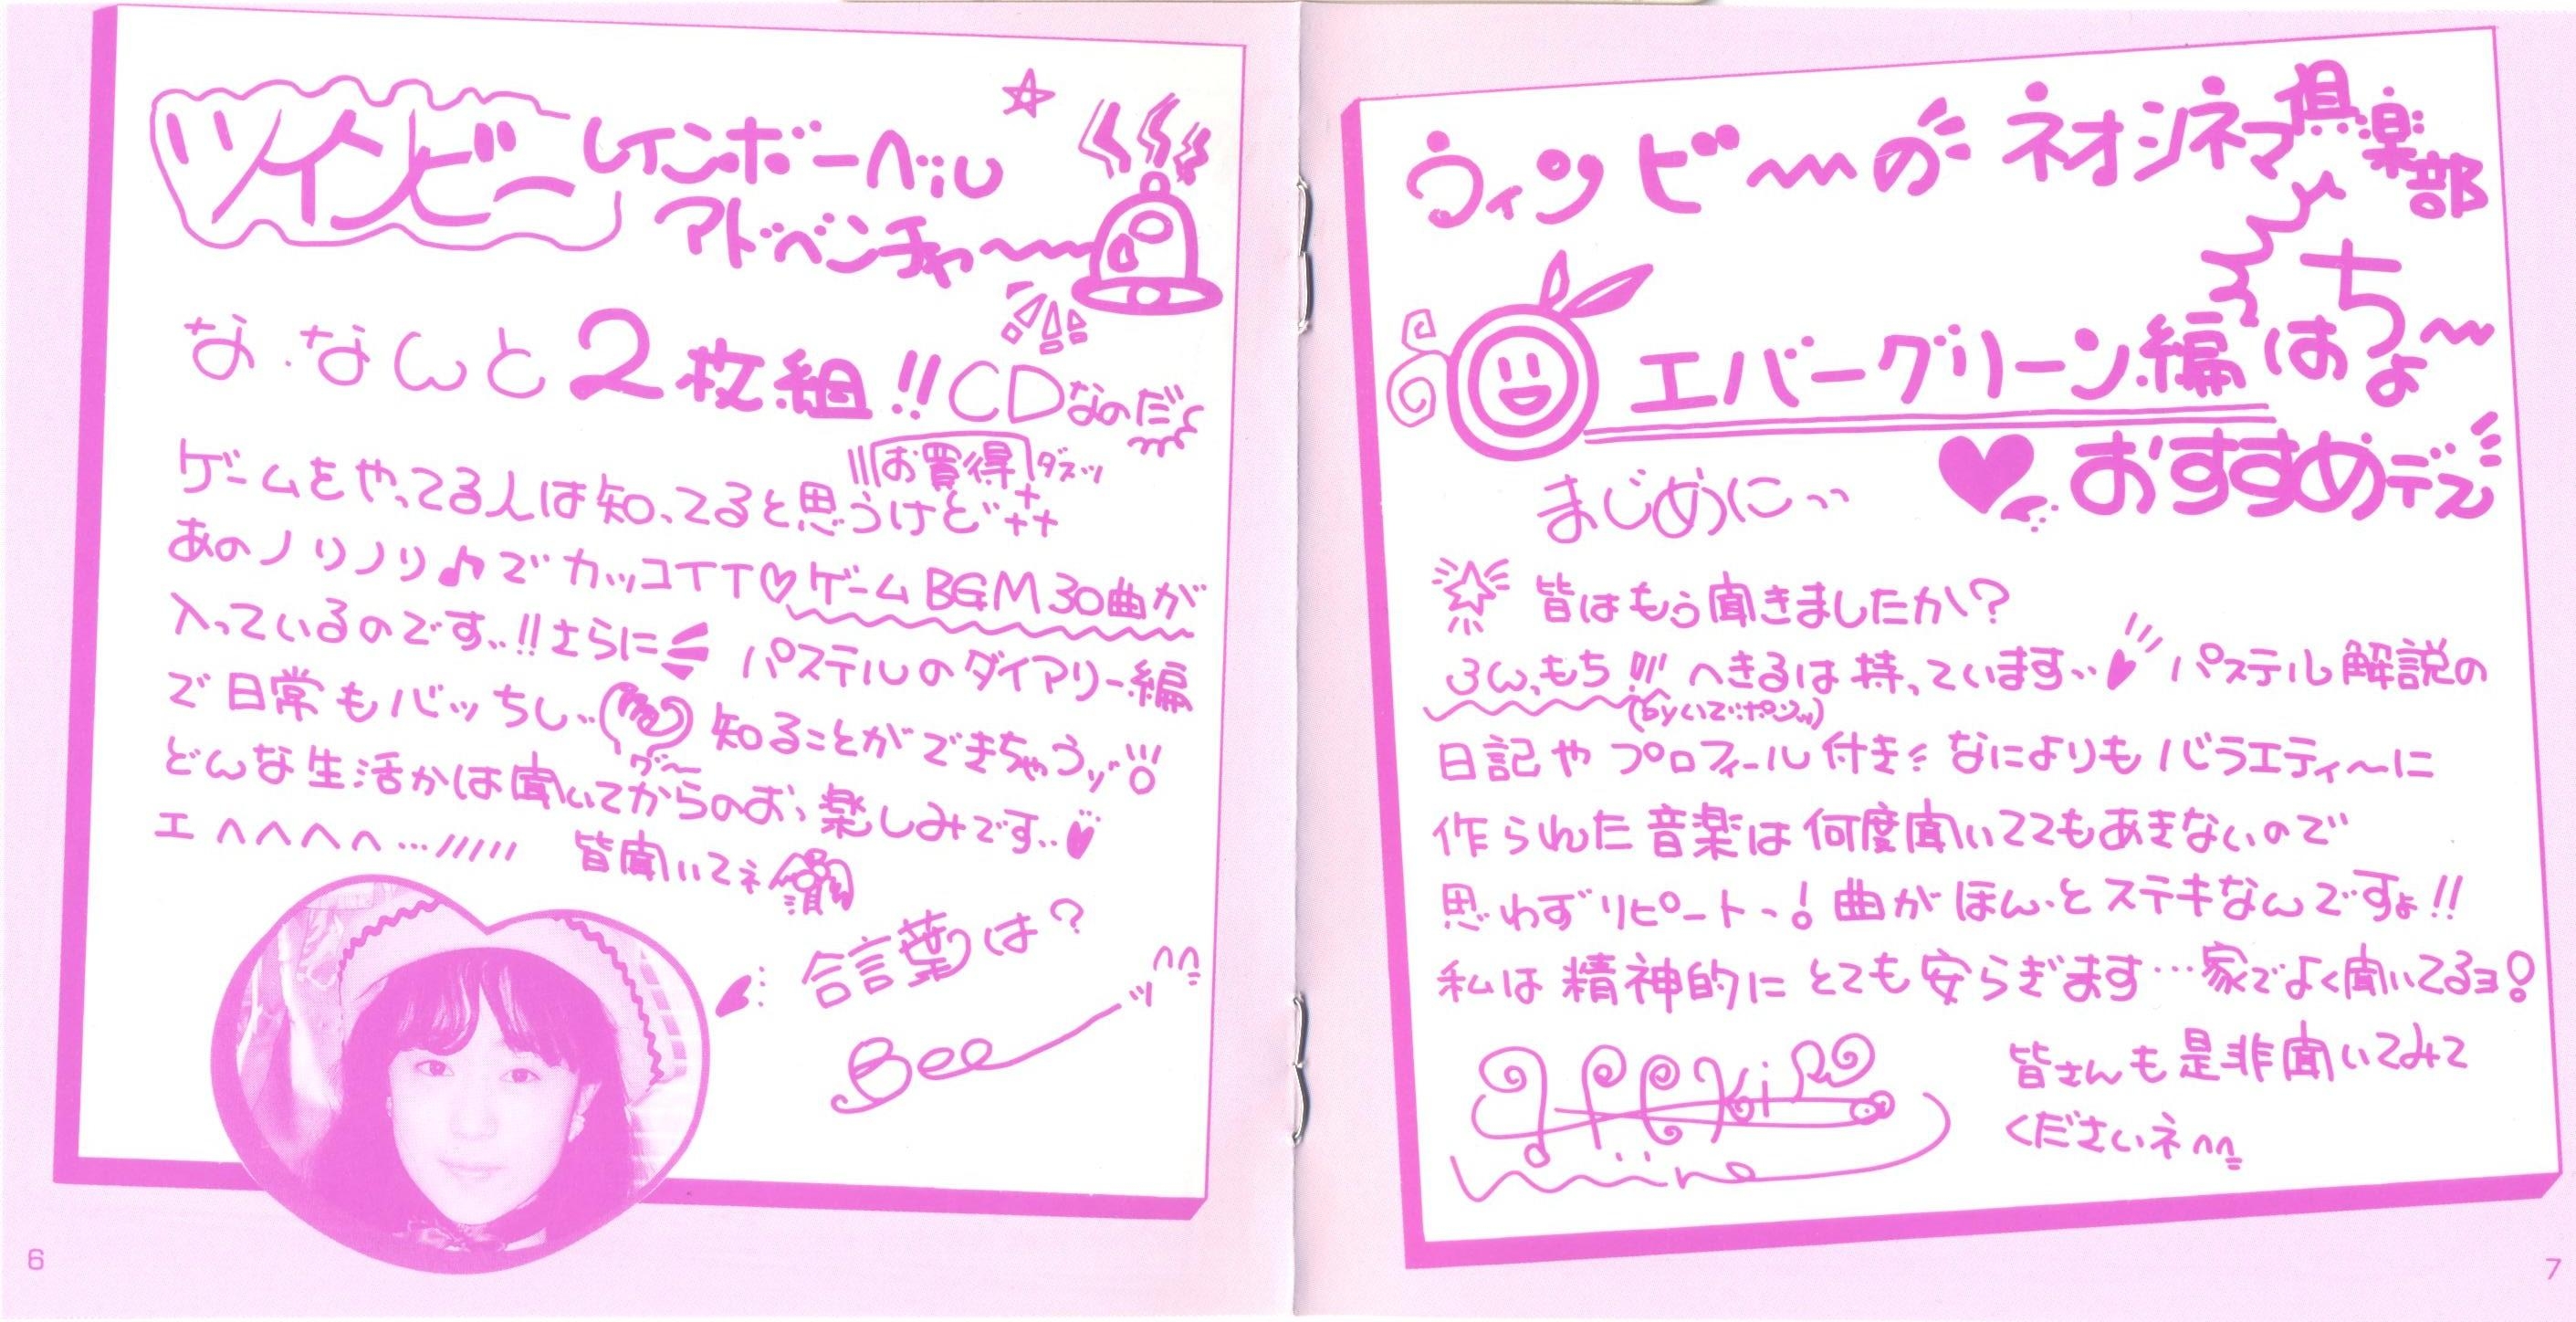 ツインビー
レインボーベル
アドベンチャ〜
な・なんと2枚組!!CDなのだ
お買得ダスッ
ゲームをやってる人は知ってると思うけど
あのノリノリ♪でカッコイイ♡ゲームBGM30曲が
入っているのです、!!さらに パステルのダイアリー編
で日常もバッちし、知ることができちゃうッ
グ〜
どんな生活かは聞いてからのお、楽しみです、
エヘヘヘヘ…///// 皆聞いてネ
合言葉は?
Beeッ^^
6
ウィンビ〜の ネオシネマ倶楽部
エバーグリーン編はちょ〜
♥おすすめデス
まじめに、、
皆はもう聞きましたか?
ろん、もち!!! へきるは持っています、 パステル解説の
日記やプロフィール付き なによりもバラエティ〜に
作られた音楽は何度聞いててもあきないので
思わずリピートっ! 曲がほんとステキなんですょ!!
私は精神的にとても安らぎます…家でよく聞いてるヨ!
皆さんも是非聞いてみて
くださいネ^^
7